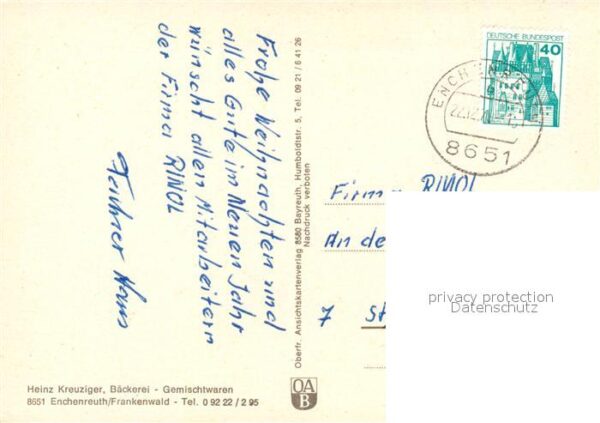 Frohe Weihnachten und
alles Gute im Neuen Jahr
wünscht allen Mitarbeitern
der Firma RINOL
Teichner Hans
Oberfr. Ansichtskartenverlag 8580 Bayreuth, Humboldtstr. 5, Tel. 09 21 / 6 41 26
Nachdruck verboten
DEUTSCHE BUNDESPOST
40
8651
Firma RINOL
An de
7 St
privacy protection
Datenschutz
Heinz Kreuziger, Bäckerei - Gemischtwaren
8651 Enchenreuth/Frankenwald - Tel. 0 92 22 / 2 95
OA
B